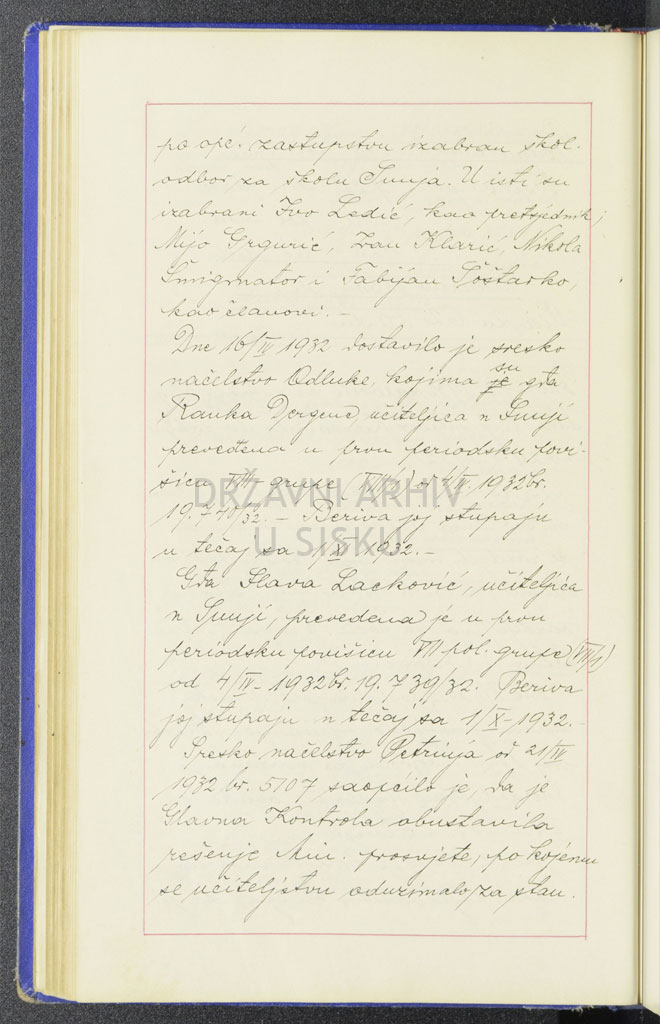 po opć. zastupstvu izabran škol.
odbor za školu Sunja. U isti su
izabrani Ivo Ledić, kao pretsjednik;
Mijo Grgurić, Ivan Klarić, Nikola
Šmigmator i Fabijan Šoštarko,
kao članovi. –
Dne 16/IV 1932 dostavilo je sresko
načelstvo Odluke, kojima je su gđa
Ranka Dergenc, učiteljica u Sunji
prevedena u prvu periodsku povi-
šicu VIII grupe (VIII/1) od 4/IV. 1932 br.
19.740/32. – Beriva joj stupaju
u tečaj sa 1/XI 1932. –
Gđa Slava Lacković, učiteljica
u Sunji, prevedena je u prvu
periodsku povišicu VII pol. grupe (VII/1)
od 4/IV – 1932 br. 19.739/32. Beriva
joj stupaju u tečaj sa 1/X – 1932. –
Sresko načelstvo Petrinja od 21/IV
1932 br. 5107 saopćilo je, da je
Glavna Kontrola obustavila
rešenje Min. prosvjete, po kojemu
se učiteljstvu oduzimalo za stan.
DRŽAVNI ARHIV
U SISKU